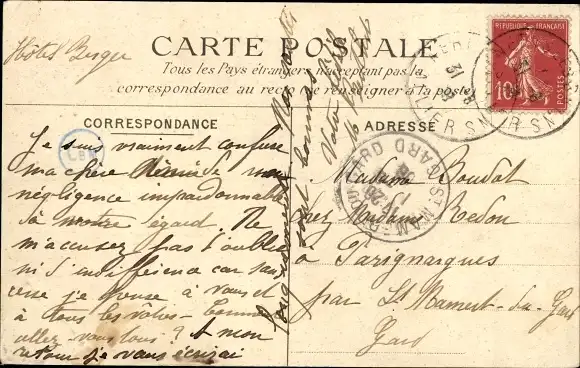 Hôtel Berger
CARTE POSTALE
Tous les Pays étrangers n'acceptant pas la
correspondance au recto se renseigner à la poste
CORRESPONDANCE
ADRESSE
Je suis vraiment confuse
ma chère de ma
négligence impardonnable
à votre égard. Ne
m'accusez pas d'oubli
ni d'indifférence car sans
cesse je pense à vous et
à tous les vôtres. Comment
allez vous tous? A mon
retour je vous écrirai
longuement
Madame Boudat
chez Madame Redon
à Parignargues
par St Mamert-du-Gard
Gard
REPUBLIQUE FRANÇAISE
10
GARD